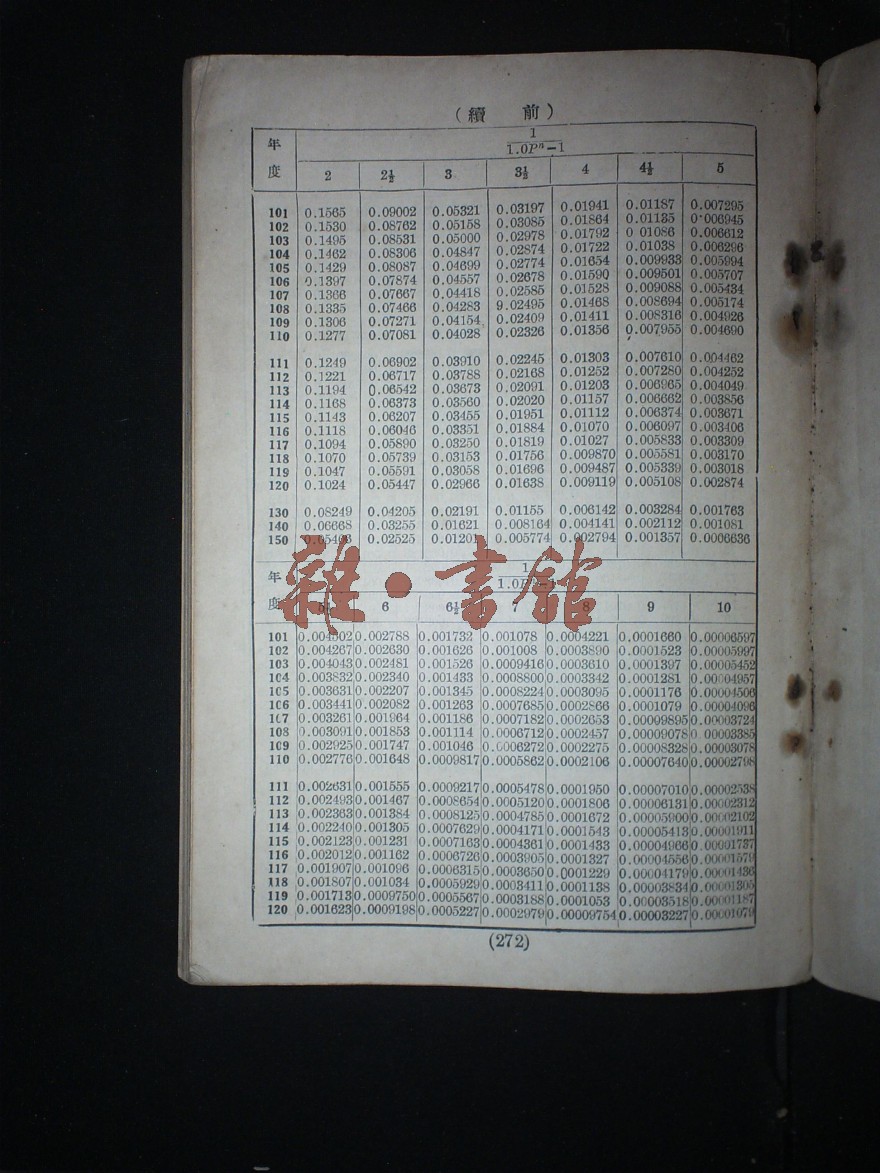 (續 前)
年度
1
1.0Pⁿ−1
2 2½ 3 3½ 4 4½ 5
101 0.1565 0.09002 0.05321 0.03197 0.01941 0.01187 0.007295
102 0.1530 0.08762 0.05158 0.03085 0.01864 0.01135 0·006945
103 0.1495 0.08531 0.05000 0.02978 0.01792 0 01086 0.006612
104 0.1462 0.08306 0.04847 0.02874 0.01722 0.01038 0.006296
105 0.1429 0.08087 0.04699 0.02774 0.01654 0.009933 0.005994
106 0.1397 0.07874 0.04557 0.02678 0.01590 0.009501 0.005707
107 0.1366 0.07667 0.04418 0.02585 0.01528 0.009088 0.005434
108 0.1335 0.07466 0.04283 9.02495 0.01468 0.008694 0.005174
109 0.1306 0.07271 0.04154 0.02409 0.01411 0.008316 0.004926
110 0.1277 0.07081 0.04028 0.02326 0.01356 0.007955 0.004690
111 0.1249 0.06902 0.03910 0.02245 0.01303 0.007610 0.004462
112 0.1221 0.06717 0.03788 0.02168 0.01252 0.007280 0.004252
113 0.1194 0.06542 0.03673 0.02091 0.01203 0.006965 0.004049
114 0.1168 0.06373 0.03560 0.02020 0.01157 0.006662 0.003856
115 0.1143 0.06207 0.03455 0.01951 0.01112 0.006374 0.003671
116 0.1118 0.06046 0.03351 0.01884 0.01070 0.006097 0.003406
117 0.1094 0.05890 0.03250 0.01819 0.01027 0.005833 0.003309
118 0.1070 0.05739 0.03153 0.01756 0.009870 0.005581 0.003170
119 0.1047 0.05591 0.03058 0.01696 0.009487 0.005339 0.003018
120 0.1024 0.05447 0.02966 0.01638 0.009119 0.005108 0.002874
130 0.08249 0.04205 0.02191 0.01155 0.006142 0.003284 0.001763
140 0.06668 0.03255 0.01621 0.008164 0.004141 0.002112 0.001081
150 0.02525 0.01201 0.005774 0.002794 0.001357 0.0006636
年度
1
雜·書館
6 6½ 7 8 9 10
101 0.004002 0.002788 0.001732 0.001078 0.0004221 0.0001660 0.00006597
102 0.004267 0.002630 0.001626 0.001008 0.0003890 0.0001523 0.00005997
103 0.004043 0.002481 0.001526 0.0009416 0.0003610 0.0001397 0.00005452
104 0.003832 0.002340 0.001433 0.0008800 0.0003342 0.0001281 0.00004957
105 0.003631 0.002207 0.001345 0.0008224 0.0003095 0.0001176 0.00004506
106 0.003441 0.002082 0.001263 0.0007685 0.0002866 0.0001079 0.00004096
107 0.003261 0.001964 0.001186 0.0007182 0.0002653 0.00009895 0.00003724
108 0.003091 0.001853 0.001114 0.0006712 0.0002457 0.00009078 0.00003385
109 0.002925 0.001747 0.001046 0.0006272 0.0002275 0.00008328 0.00003078
110 0.002776 0.001648 0.0009817 0.0005862 0.0002106 0.00007640 0.00002798
111 0.002631 0.001555 0.0009217 0.0005478 0.0001950 0.00007010 0.00002538
112 0.002493 0.001467 0.0008654 0.0005120 0.0001806 0.00006131 0.00002312
113 0.002363 0.001384 0.0008125 0.0004785 0.0001672 0.00005900 0.00002102
114 0.002240 0.001305 0.0007629 0.0004171 0.0001543 0.00005413 0.00001911
115 0.002123 0.001231 0.0007163 0.0004361 0.0001433 0.00004966 0.00001737
116 0.002012 0.001162 0.0006726 0.0003905 0.0001327 0.00004556 0.00001579
117 0.001907 0.001096 0.0006315 0.0003650 0.0001229 0.00004179 0.00001436
118 0.001807 0.001034 0.0005929 0.0003411 0.0001138 0.00003834 0.00001305
119 0.001713 0.0009750 0.0005567 0.0003188 0.0001053 0.00003518 0.00001187
120 0.001623 0.0009198 0.0005227 0.0002979 0.00009754 0.00003227 0.00001079
(272)